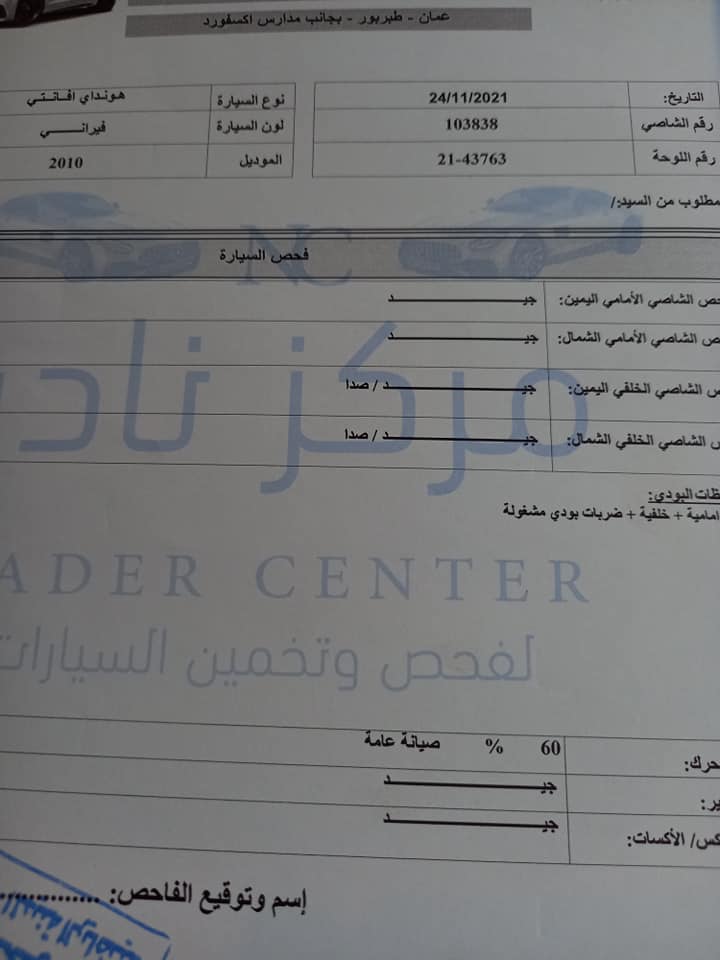 عمان - طبربور - بجانب مدارس اكسفورد
التاريخ: 24/11/2021 نوع السيارة هونداي افانتي
رقم الشاصي 103838 لون السيارة فيراني
رقم اللوحة 21-43763 الموديل 2010
مطلوب من السيد/
NC
فحص السيارة
ص الشاصي الأمامي اليمين: جيـــــد
ص الشاصي الأمامي الشمال: جيـــــد
ص الشاصي الخلفي اليمين: جيـــــد / صدا
ص الشاصي الخلفي الشمال: جيـــــد / صدا
مركز ناد
ظات البودي:
امامية + خلفية + ضربات بودي مشغولة
ADER CENTER
لفحص وتخمين السيارات
حرك: 60 % صيانة عامة
ير: جيـــــد
كس/ الأكسات: جيـــــد
إسم وتوقيع الفاحص: ..............